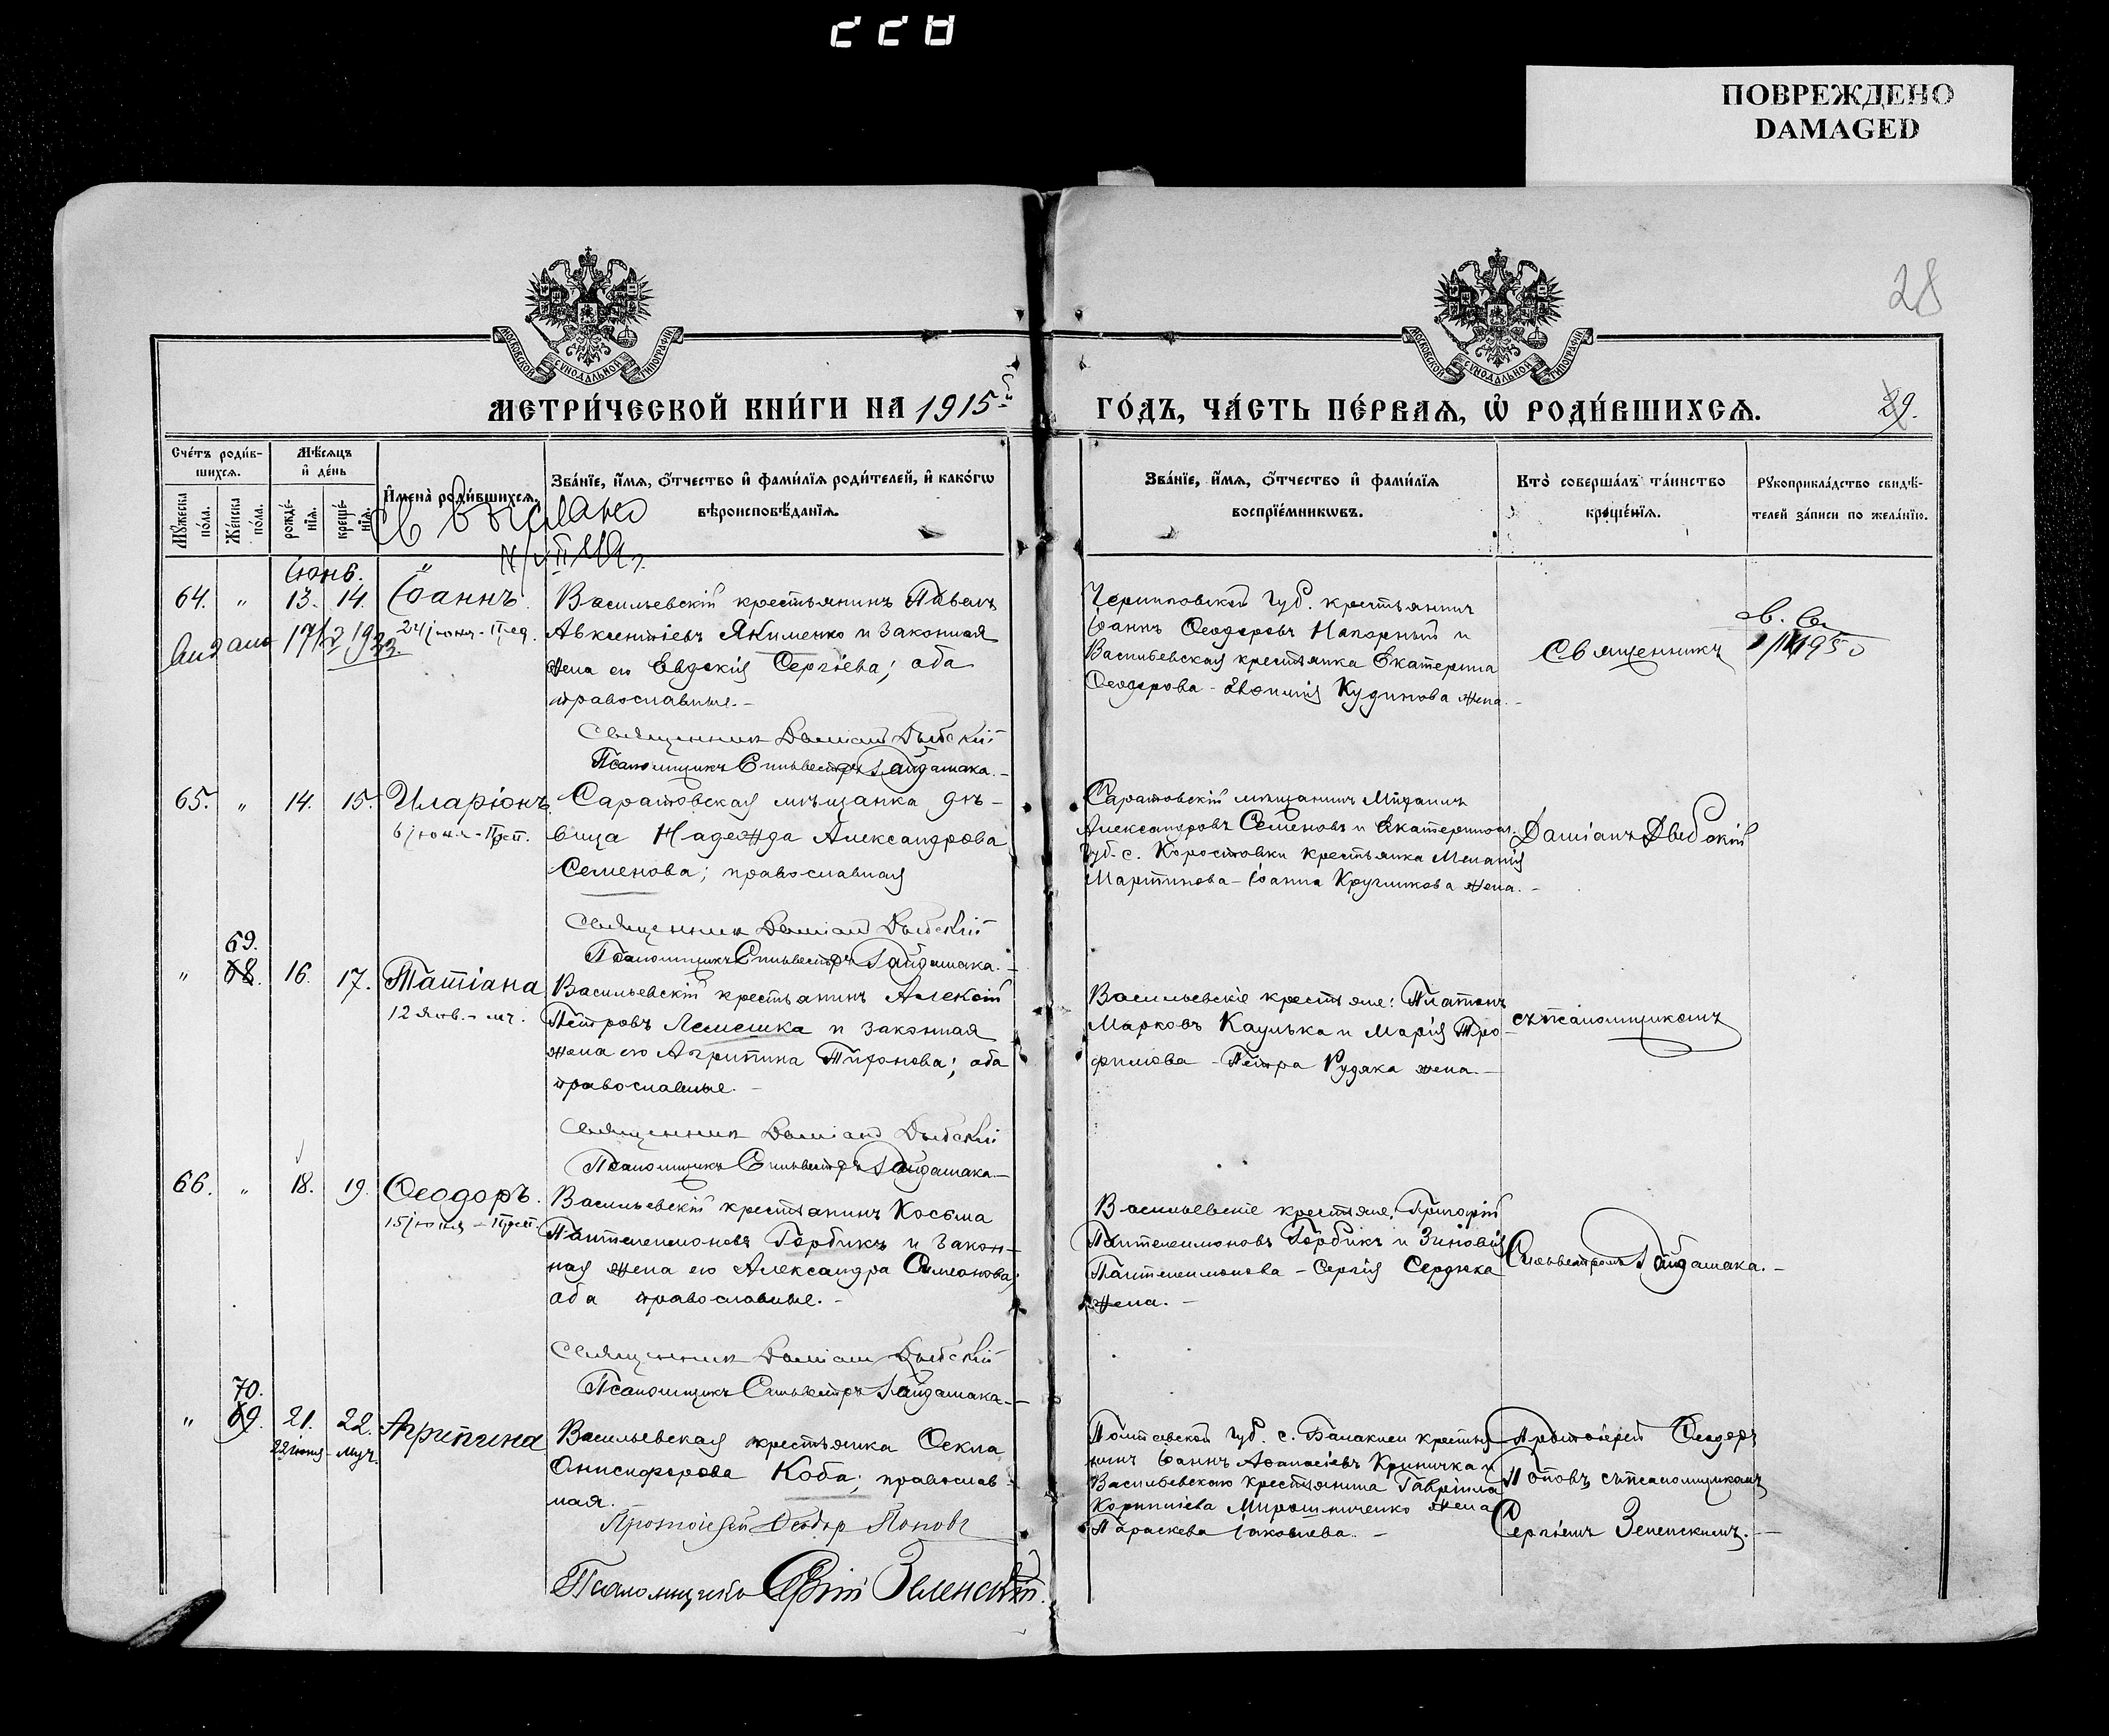 228
ПОВРЕЖДЕНО
DAMAGED
28
МОСКОВСКОЙ СѴНОДАЛЬНОЙ ТИПОГРАФІИ
МОСКОВСКОЙ СѴНОДАЛЬНОЙ ТИПОГРАФІИ
МЕТРИ́ЧЕСКОЙ КНИ́ГИ НА 1915й
ГО́ДЪ, ЧА́СТЬ ПЕ́РВАѦ, Ѡ҆ РОДИ́ВШИХСѦ.
29.
Сче́тъ роди́в-
шихсѧ.
Мѣ́сѧцъ
и҆ де́нь
Мꙋ́жеска по́ла.
Же́нска по́ла.
рожде́-нїѧ.
креще́-нїѧ.
И҆мена̀ роди́вшихсѧ.
Зва́нїе, и҆́мѧ, ѻ҆́тчество и҆ фами́лїѧ роди́телей, и҆ како́гѡ
вѣроисповѣ́данїѧ.
Зва́нїе, и҆́мѧ, ѻ҆́тчество и҆ фами́лїѧ
воспрїе́мникѡвъ.
Кто̀ соверша́лъ та́инство
креще́нїѧ.
Рꙋкоприкла́дство свидѣ́-
телей за́писи по жела́нїю.
Св выслано
Іюнь.
64. " 13. 14. Іоаннъ.
24 іюня - Пред.
Выдано
Васильевскій крестьянинъ Павелъ
Авксентіевъ Якименко и законная
жена его Евдокія Сергіева; оба
православные.-
Священникъ Даміанъ Дыбскій
Псаломщикъ Сильвестръ Гайдамака.-
Черниговской губ. крестьянинъ
Іоаннъ Ѳеодоровъ Напорный и
Васильевская крестьянка Екатерина
Ѳеодорова - Евѳимія Кудинова жена.-
Священникъ
65. " 14. 15. Иларіонъ
6 іюня - Преп.
Саратовская мѣщанка дѣ-
вица Надежда Александрова
Семенова; православная
Священникъ Даміанъ Дыбскій
Псаломщикъ Сильвестръ Гайдамака.-
Саратовскій мѣщанинъ Михаилъ
Александровъ Семеновъ и Екатеринос.
губ. с. Коростовки крестьянка Меланія
Мартинова - Іоанна Кругликова жена.-
Даміанъ Дыбскій
69.
" 68. 16. 17. Татіана
12 янв. - мч.
Васильевскій крестьянинъ Алексій
Петровъ Лемешка и законная
жена его Агрипина Тихонова; оба
православные.-
Священникъ Даміанъ Дыбскій
Псаломщикъ Сильвестръ Гайдамака.-
Васильевскіе крестьяне: Платонъ
Марковъ Каулька и Марія Тро-
фимова - Петра Рудяка жена.-
съ псаломщикомъ
66. " 18. 19. Ѳеодоръ.
15 іюня - Преп.
Васильевскій крестьянинъ Косьма
Пантелеимоновъ Горбикъ и закон-
ная жена его Александра Симеонова;
оба православные.-
Священникъ Даміанъ Дыбскій
Псаломщикъ Сильвестръ Гайдамака.-
Васильевскіе крестьяне: Григорій
Пантелеимоновъ Горбикъ и Зиновія
Пантелеимонова - Сергія Сердюка
жена.-
Сильвестромъ Гайдамака.-
70.
" 69. 21. 22. Агрипина
22 іюня - муч.
Васильевская крестьянка Ѳекла
Онисифорова Коба; православ-
ная.
Протоіерей Ѳеодоръ Поповъ
Псаломщикъ Сергій Зеленскій.
Полтавской губ. с. Балаклеи крестья-
нинъ Іоаннъ Аѳанасіевъ Криничка и
Васильевскаго крестьянина Гавріила
Корниліева Мирошниченко жена
Параскева Іаковлева.-
Протоіерей Ѳеодоръ
Поповъ съ псаломщикомъ
Сергіемъ Зеленскимъ.-